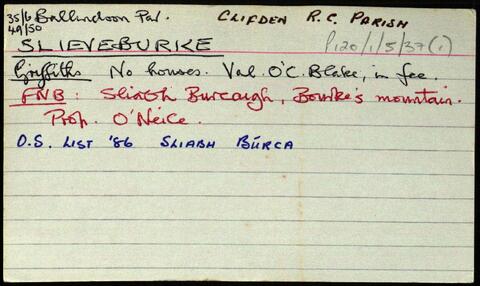 35/6 Ballindoon Par. CLIFDEN R.C. PARISH
49/50
SLIEVEBURKE P120/1/5/37(1)
Griffiths No houses. Val. O'C. Blake, in fee.
FNB: Sliabh Burcaigh, Bourke's mountain.
Prop. O'Neice.
O.S. LIST '86 SLIABH BÚRCA